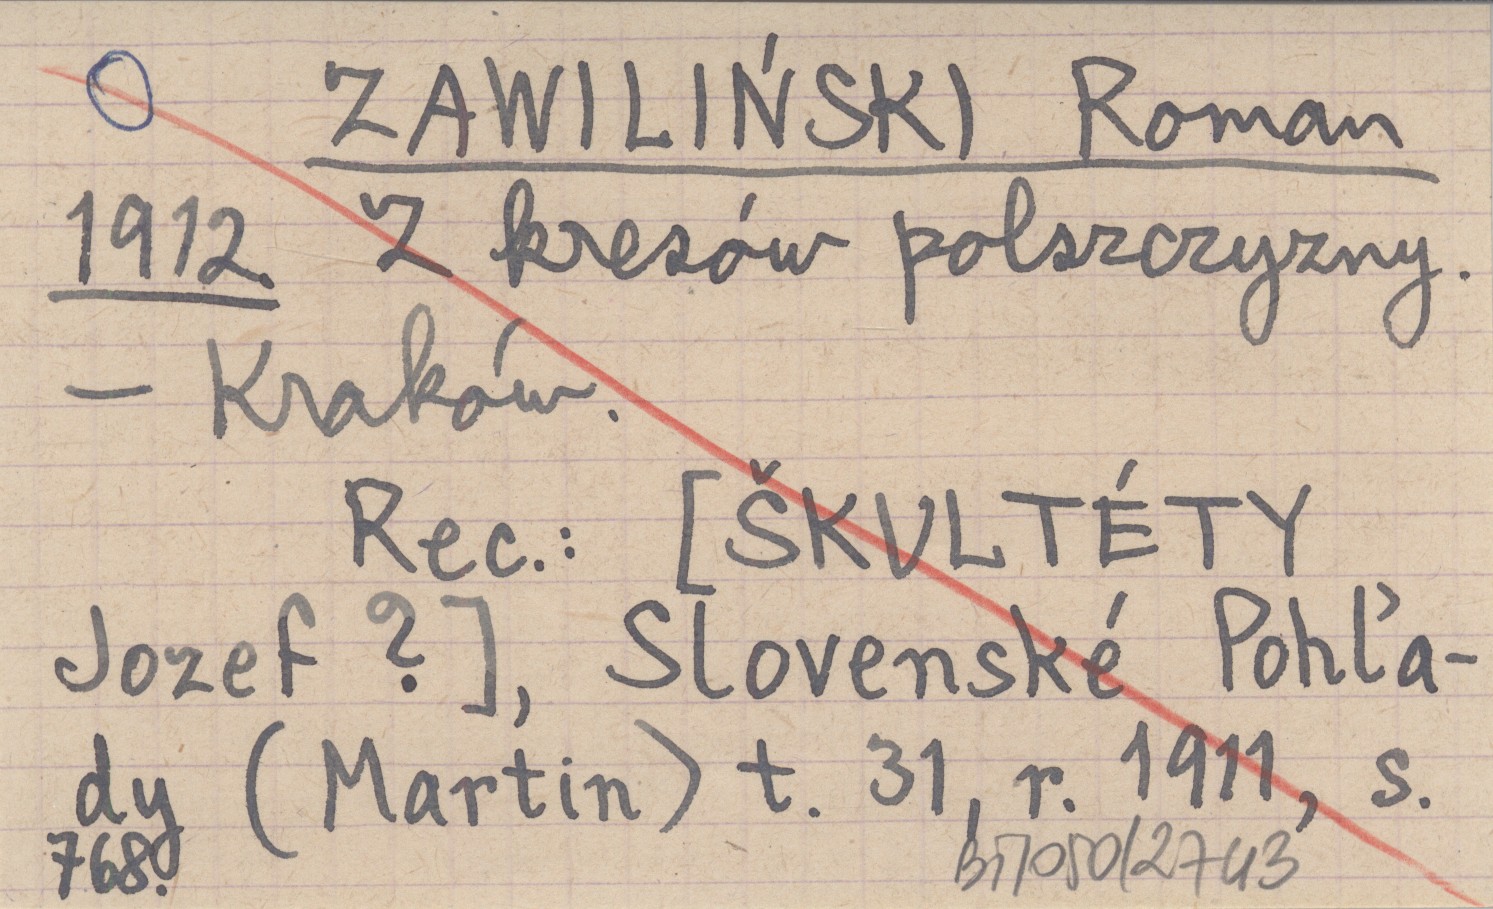 ZAWILIŃSKI Roman
1912. Z kresów polszczyzny.
— Kraków.
Rec.: [ŠKULTÉTY
Jozef ?], Slovenské Pohľa-
dy (Martin) t. 31, r. 1911, s.
768.